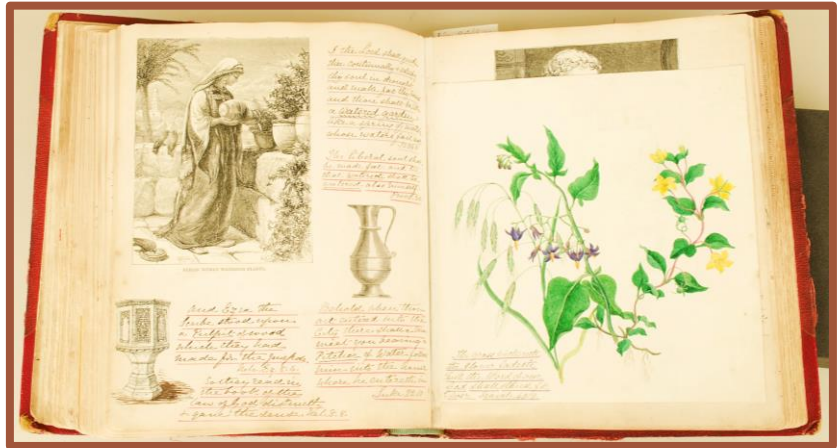 the Lord shall guide
thee continually & satisfy
thy soul in drought
and make fat thy bones
and thou shalt be
a watered garden
like a spring of water
whose waters fail not
The liberal soul shall
be made fat and he
that watereth shall be
watered also himself
WOMAN WATERING PLANTS
And Ezra the
Scribe stood upon
a Pulpit of wood
which they had
made for the purpose
So they read in
the book of the
Law of God distinctly
& gave the sense. Neh 8.8.
Behold when
are entered into the
City there shall a
meet you bearing a
Pitcher of Water follow
him into the house
where he entereth in
The grass withereth
the flower fadeth
but the word
God shall stand for
ever